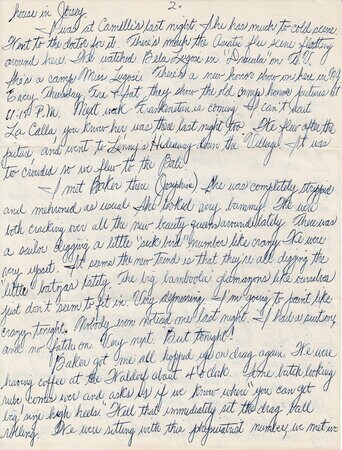 house in Jersey. 2.
I was at Camille's last night. She has much to cold scene.
Went to the doctor for it. There's much the Asiatic flu scene floating
around here. We watched Bela Lugosi in "Dracula" on T.V.
She's a camp Miss Lugosi. There's a new horror show on here in N.Y.
Every Thursday, Fri & Sat, they show the old camp horror pictures at
11:15 P.M. Next week Frankenstein is coming. I can't wait.
La Calla you know her was there last night too. We flew after the
picture, and went to Lenny's Hideaway down the "Village". It was
to crowded so we flew to the
I met Baker there (Josephine). She was completely stripped
and as usual. She looked very bummy. We were
both cracking over all the new beauty queens around lately. There was
a sailor digging a little "sick bird" number like crazy. We were
very upset. It seems the new trend is that they're all digging the
little batejas latly. The big glamazons like ourselves
just don't seem to fit in. Very depressing. I'm going to paint like
crazy tonight. Nobody even noticed me last night. I had a suit on,
and no on. Very nyet. But tonight!
Baker got me all hopped up on drag again. We were
having coffee at the Waldorf about 4 o'clock. Some butch looking
rube comes over and asks us if we know where "you can get
big size high heels". Well that immediately set the drag ball
rolling. We were sitting with this number, we met in